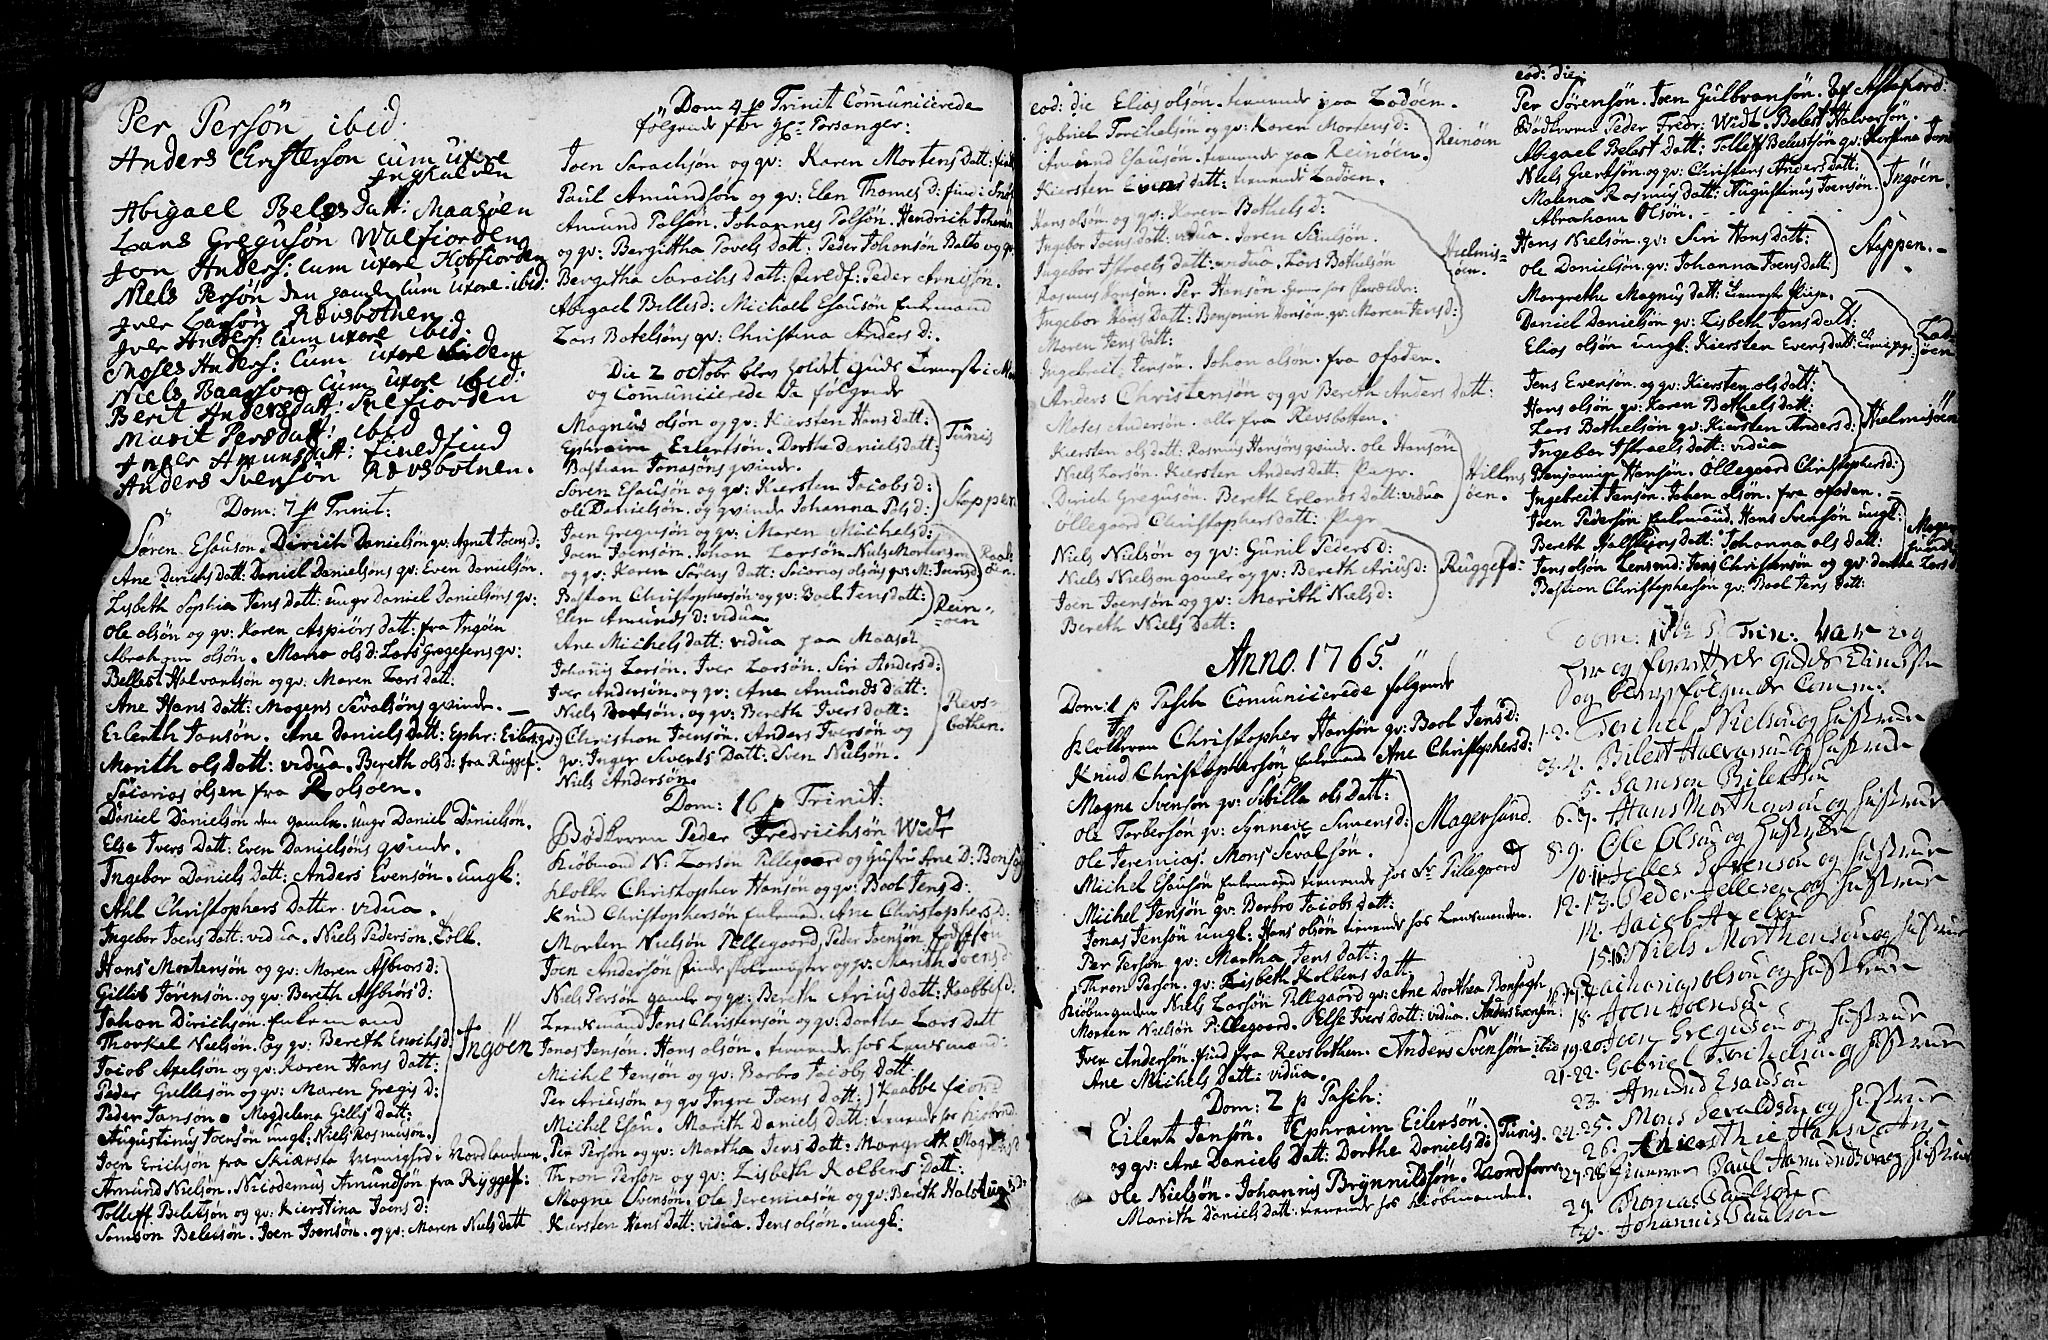 Per Persön ibid.
Anders Christenson cum uxore
Abigael Belesdatt: Maasöen
Lars Gregusön Walfiorden
Jon Anders: cum uxore Kobfiorden
Niels Persön den gamle cum uxore ibid:
Iver Larsön Revsbotnen
Iver Anders: cum uxore ibid:
Moses Anders: cum uxore ibidem
Niels Baarson cum uxore ibid:
Berit Andersdatt:
Marit Persdatt: ibid
Inger Amundsdatt:
Anders Svensön Revsbotnen.
Dom: 7 p Trinit:
Sören Esauson. Dirich Danielson gv: Agnet Joensd:
Ane Dirichs datt: Daniel Danielsöns gv: Even Danielsön.
Lisbeth Sophia Jens datt: unge Daniel Danielsöns gv:
Ole olsön og gv: Karen Aspiörs datt: fra Ingöen
Abraham olsön. Maria ols d: Lars Gregersens gv:
Bellest Halvorsön og gv: Maren Lars datt:
Ane Hans datt: Mogens Sevalsöns qvinde.
Eilerth Jansön. Ane Daniels datt: Ephr: Eilers gv:
Marith ols datt: vidua. Bereth ols d: fra Ruggef:
Sacarias olsen fra Rolsöen.
Daniel Danielsön den gamle. unge Daniel Danielsön.
Else Ivers datt: Even Danielsöns qvinde.
Ingebor Daniels datt: Anders Evensön. ungk:
Ahl Christophers datter vidua.
Ingebor Joens datt: vidua. Niels Pederson. Zolk.
Hans Mortensön og gv: Maren Asbiors d:
Gillis Jörensön. og gv: Bereth Asbiörs d:
Johan Dirichsön.
Thorkel Nielsön. og gv: Bereth Enochs d:
Jacob Axelson og gv: Karen Hans datt:
Peder Gullesön og gv: Maren Gregis d:
Peder Hanson. Magdelena Gillis datt:
Augustinus Joensön ungk: Niels Rosmuson.
Ingöen
Joen Erichsön fra
Amund Nielsön. Nicodemus Amundsön fra Ryggef:
Tolleff Belesön og gv: Kierstina Joens d:
Samson Belesön. Joen Joensön. og gv: Maren Niels datt
Dom 4 p Trinit Communicerede
fölgende
Joen Sarachsön og gv: Karen Mortens datt:
Paul Amundsön og gv: Elen Thomes d:
Amund Polsön. Johannes Polsön. Hendrich Johansön
og gv: Bergittha Povels datt. Peder Johansön Balto og gv:
Bergitha Sarachs datt: Peder Arnesön.
Abigael Belles d: Michael Esausön
Lars Botelsöns gv: Christina Anders d:.
Die 2 octobr blev holdet
og Comunicerede da fölgende
Magnus olsön og gv: Kiersten Hans datt:
Ephraim Eilertsön. Dorthe Daniels datt:
Bastian Jonasöns qvinde.
Tunis
Sören Esausön og gv: Kiersten Jacobs d:
ole Danielsön. og qvinde Johanna Pols d:
Stappen
Joen Gregusön og gv: Maren Michels d:
Joen Joensön. Johan Larsön. Niels Mortenson
og gv: Karen Sörens datt: Sacarias olsöns gv: M: Jensd:
Bastian Christophersön og gv: Boel Jens datt:
Elen Amunds d: vidua.
Rein-
öen
Ane Michels datt: vidua paa Maasöe
Johanis Larsön. Iver Larsön. Siri Anders d:
Iver Andersön. og gv: Ane Amunds datt:
Niels Baarsön. og gv: Bereth Ivers datt:
Christian Jensön. Anders Iversön og
gv: Inger Siverts datt: Sven Nielsön.
Niels Andersön.
Revs-
bothen.
Dom: 16 p Trinit:
Bödkeren Peder Fredrichsön Widt
Kiöbmand N: Larsön Pillegaard og Hustru Ane D: Bonsag
klokker Christopher Hansön og gv: Boel Jens d:
Knud Christophersön Ane Christophers d:
Morten Nielsön Pillegaard, Peder Joensön
Joen Andersön og gv: Marith Joens d:
Niels Persön gamle og gv: Bereth Arius datt: Kaabbe
Lensmand Jens Christensön og gv: Dorthe Lars datt
Jonas Jensön. Hans olsön. tienende hos Lensmand:
Michel Jensön og gv: Barbro Jacobs datt:
Per Ariusön og gv Ingre Joens datt: Kaabbe fiord
Michel Esau. Marith Daniels datt: tienende hos
Per Persön og gv: Martha Jens datt: Margreth Magnusd:
Thron Persön og gv: Lisbeth Kolbens datt:
Magne Svensön. Ole Jeremiasön og gv: Bereth Halstensd:
Kiersten Hans datt: vidua. Jens olsön. ungk:
eod: die Elias olsön. tienende paa Ladöen.
Gabriel Torchelsön og gv: Karen Mortens d:
Amund Esausön. tienende paa Reinöen.
Reinöen
Kiersten Evens datt: tienende Ladöen.
Hans olsön og gv: Karen Bothels d:
Ingebor Joens datt: vidua. Joren
Ingebor Israels datt: vidua. Lars Bothelsön
Rasmus Hansön. Per Hansön.
Ingebor Hans datt: Benjamin Hansön. gv: Maren Jens d:
Maren Jens datt:
Hielmis=
öen.
Ingebreit Jensön. Johan olsön. fra ofoden.
Anders Christensön og gv Bereth Anders datt:
Moses Andersön. alle fra Revsbotten.
Kiersten ols datt: Rasmus Hansöns qvinde. ole Hansön
Niels Larsön. Kiersten Anders datt: Pige.
Dirich Gregusön. Bereth Erlands datt: vidua
öllegaard Christophers datt: Pige
Hillms
öen.
Niels Nielsön og gv: Gunil Peders d:
Niels Nielson gamle og gv: Bereth Arius d:
Joen Joensön og gv: Marith Niels d:
Bereth Niels datt:
Ruggefd:
Anno. 1765.
Dom: 1 p Pasch Comunicerede fölgende
Klokkeren Christopher Hansön gv: Boel Jens d:
Knud Christophersön Ane Christophers d:
Magne Svensön gv: Sibilla ols datt:
Ole Torbersön gv: Synneve Simens d:
Ole Jeremias: Mons Sevalsön.
Magersund.
Michel Esausön tienende hos Sr Pillegaard
Michel Jensön gv: Barbro Jacobs datt:
Jonas Jensön ungk: Hans olsön tienende hos Lensmanden.
Per Persön gv: Martha Jens datt:
Thron Persön. gv: Lisbeth Kolbens datt.
Kiöbmanden Niels Larsön Pillegaard gv: Ane Dorthea Bonsagh
Morten Nielsön Pillegaard. Else Ivers datt: vidua. Anders Evensön:
Iver Andersön. find fra Revsbothen. Anders Svensön ibid
Ane Michels datt: vidua.
Dom: 2 p Pasch:
Eilert Jensön. Ephraim Eilersön.
og gv: Ane Daniels datt: Dorthe Daniels d:
Tunis.
ole Nielsön. Johannis Brynnildsön. Nordfarer
Marith Daniels datt: tienende hos Kiöbmanden.
eod: die.
Per Sörensön. Joen Gulbransön. af Astafiord:
Bödkeren Peder Fredr: Widt. Belest Halversön.
Abigael Belest datt: Tolleff Belestsön gv: Kierstina Joens
Niels Giertsön og gv: Christens Anders datt:
Malena Rasmus datt: Augustinus Joensön.
Abraham Olsön.
Ingöen.
Hans Nielsön. gv: Siri Hans datt:
ole Danielsön. gv: Johanna Joens datt:
Stappen.
Margrethe Magnus datt: tienende Pige.
Daniel Danielsön gv: Lisbeth Jens datt:
Elias olsön ungk: Kiersten Evens datt:
Lad
öen
Jens Evensön. og gv: Kiersten ols datt:
Hans olsön gv: Karen Bothels datt:
Lars Bothelsön gv: Kiersten Anders d:
Ingebor Israels datt: vidua
Hielmsöen
Benjamin Hansön. Ollegaard Christophers d:
Ingebreit Jensön. Johan olsön. fra ofoden.
Joen Pedersön Hans Svensön ungk:
Bereth Halstens datt: Johanna ols datt:
Jens olsön Lensmd: Jens Christensön og gv dorthe Lars d
Bastian Christophersön gv: Boel Jens datt:
Mager
sund
Dom: Trin: var ieg
her og forrettede Guds Tieniste
og bleve fölgende Comm:
1-2. Torchel Nielsen og Hustrue
3-4. Bilert Halvorsen og Hustrue
5. Samson Bilertsen
6-7. Hans Morthensen og Hustrue
8-9. Ole Olsen og Hustrue
10-11. Jelles Sörensen og Hustrue
12-13. Peder Jellesen og Hustrue
14. Jacob Axelsen
15-16. Niels Morthensen og Hustrue
16-17. Zacharias olsen og Hustrue
18. Joen Joensen
19-20. Joen Gregusen og Hustrue
21-22. Gabriel Torchelsen og Hustrue
23. Amund Esausen
24-25. Mons Sevaldsen og Hustrue
26. Hans
27-28. Paul Hamundsen og Hustrue
29. Thomas Paulsen
30. Johannis Paulsen